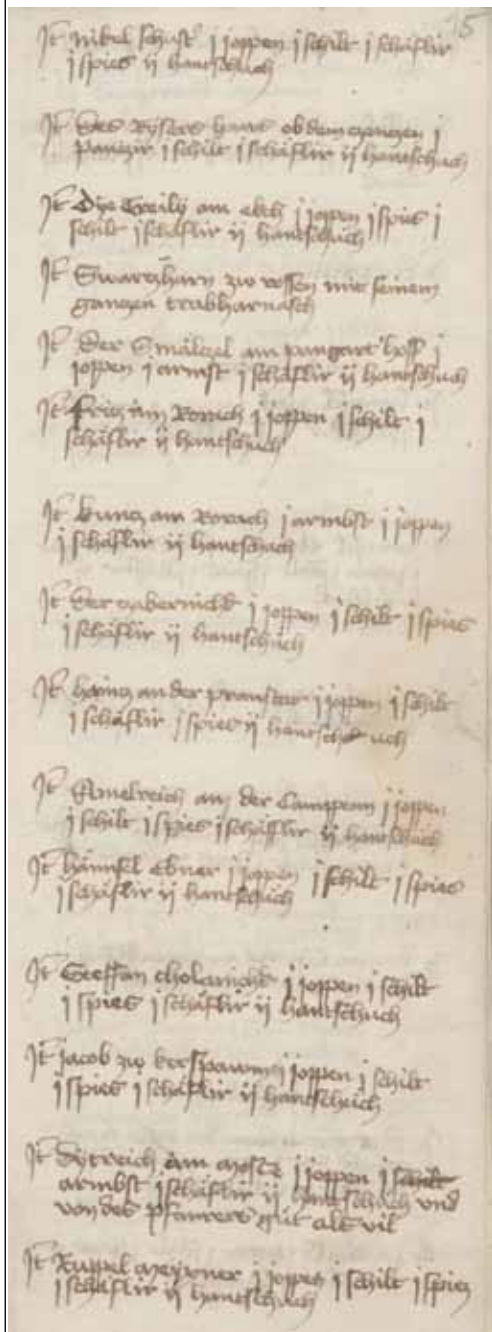 15
It nikel schust j joppen j schilt j schäflir
j spies ij hantschuch
It des Rysers hans ob dem ganzen j
panczir j schilt j schäflir ij hantschuch
It dye Greily am ekch j joppen j spies j
schilt j schäflir ij hantschuch
It Swarczhorn zw mit seinem
ganczen trabharnasch
It der Smälczel am pangart hoff j
joppen j armst j schäflir ij hantschuch
It fricz am Rorich j joppen j schilt j
schäflir ij hantschuch
It kuncz am Rorich j armbst j joppen
j schäflir ij hantschuch
It der j joppen j schilt j spies
j schäflir ij hantschuch
It haincz an der j joppen j schilt
j schäflir j spies ij hantschuch
It Amelreich an der Campenn j joppen
j schilt j spies j schäfflir ij hantschuch
It hännsel ebner j joppen j schilt j spies
j schäflir ij hantschuch
It Steffan j joppen j schilt
j spies j schäflir ij hantschuch
It jacob zw kerspawm j joppen j schilt
j spies j schäflir ij hantschuch
It dytreich am j joppen j schilt
armbst j schäflir ij hantschuch vnd
von des pfarrers gut als vil
It Ruppel j joppen j schilt j spies
j schäflir ij hantschuch